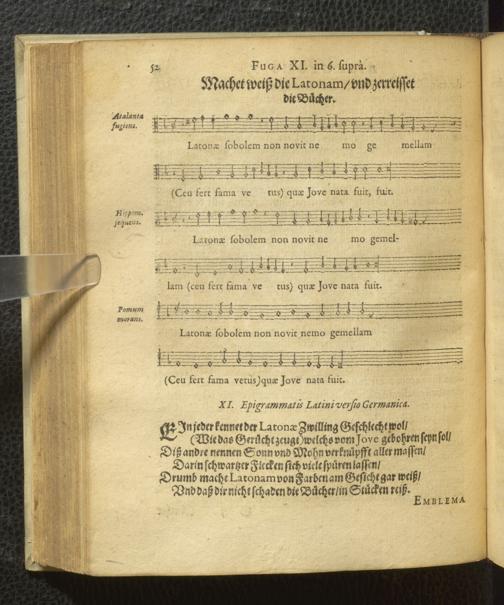 52 FUGA XI. in 6. suprà.
Machet weiß die Latonam/ vnd zerreisset
die Bücher.
Atalanta
fugiens.
Latonæ sobolem non novit ne mo ge mellam
(Ceu fert fama ve tus) quæ Jove nata fuit, fuit.
Hippom.
sequens.
Latonæ sobolem non novit ne mo gemel-
lam (ceu fert fama ve tus) quæ Jove nata fuit.
Pomum
morans.
Latonæ sobolem non novit nemo gemellam
(Ceu fert fama vetus) quæ Jove nata fuit.
XI. Epigrammatis Latini versio Germanica.
EIn jeder kennet der Latonæ Zwilling Geschlecht wol/
(Wie das Gerücht zeugt) welchs vom Jove gebohren seyn sol/
Diß andre nennen Sonn vnd Mohn verknüpfft aller massen/
Darin schwartzer Flecken sich viele spüren lassen/
Drumb macht Latonam von Farben am Gesicht gar weiß/
Vnd daß dir nicht schaden die Bücher/ in Stücken reiß.
EMBLEMA